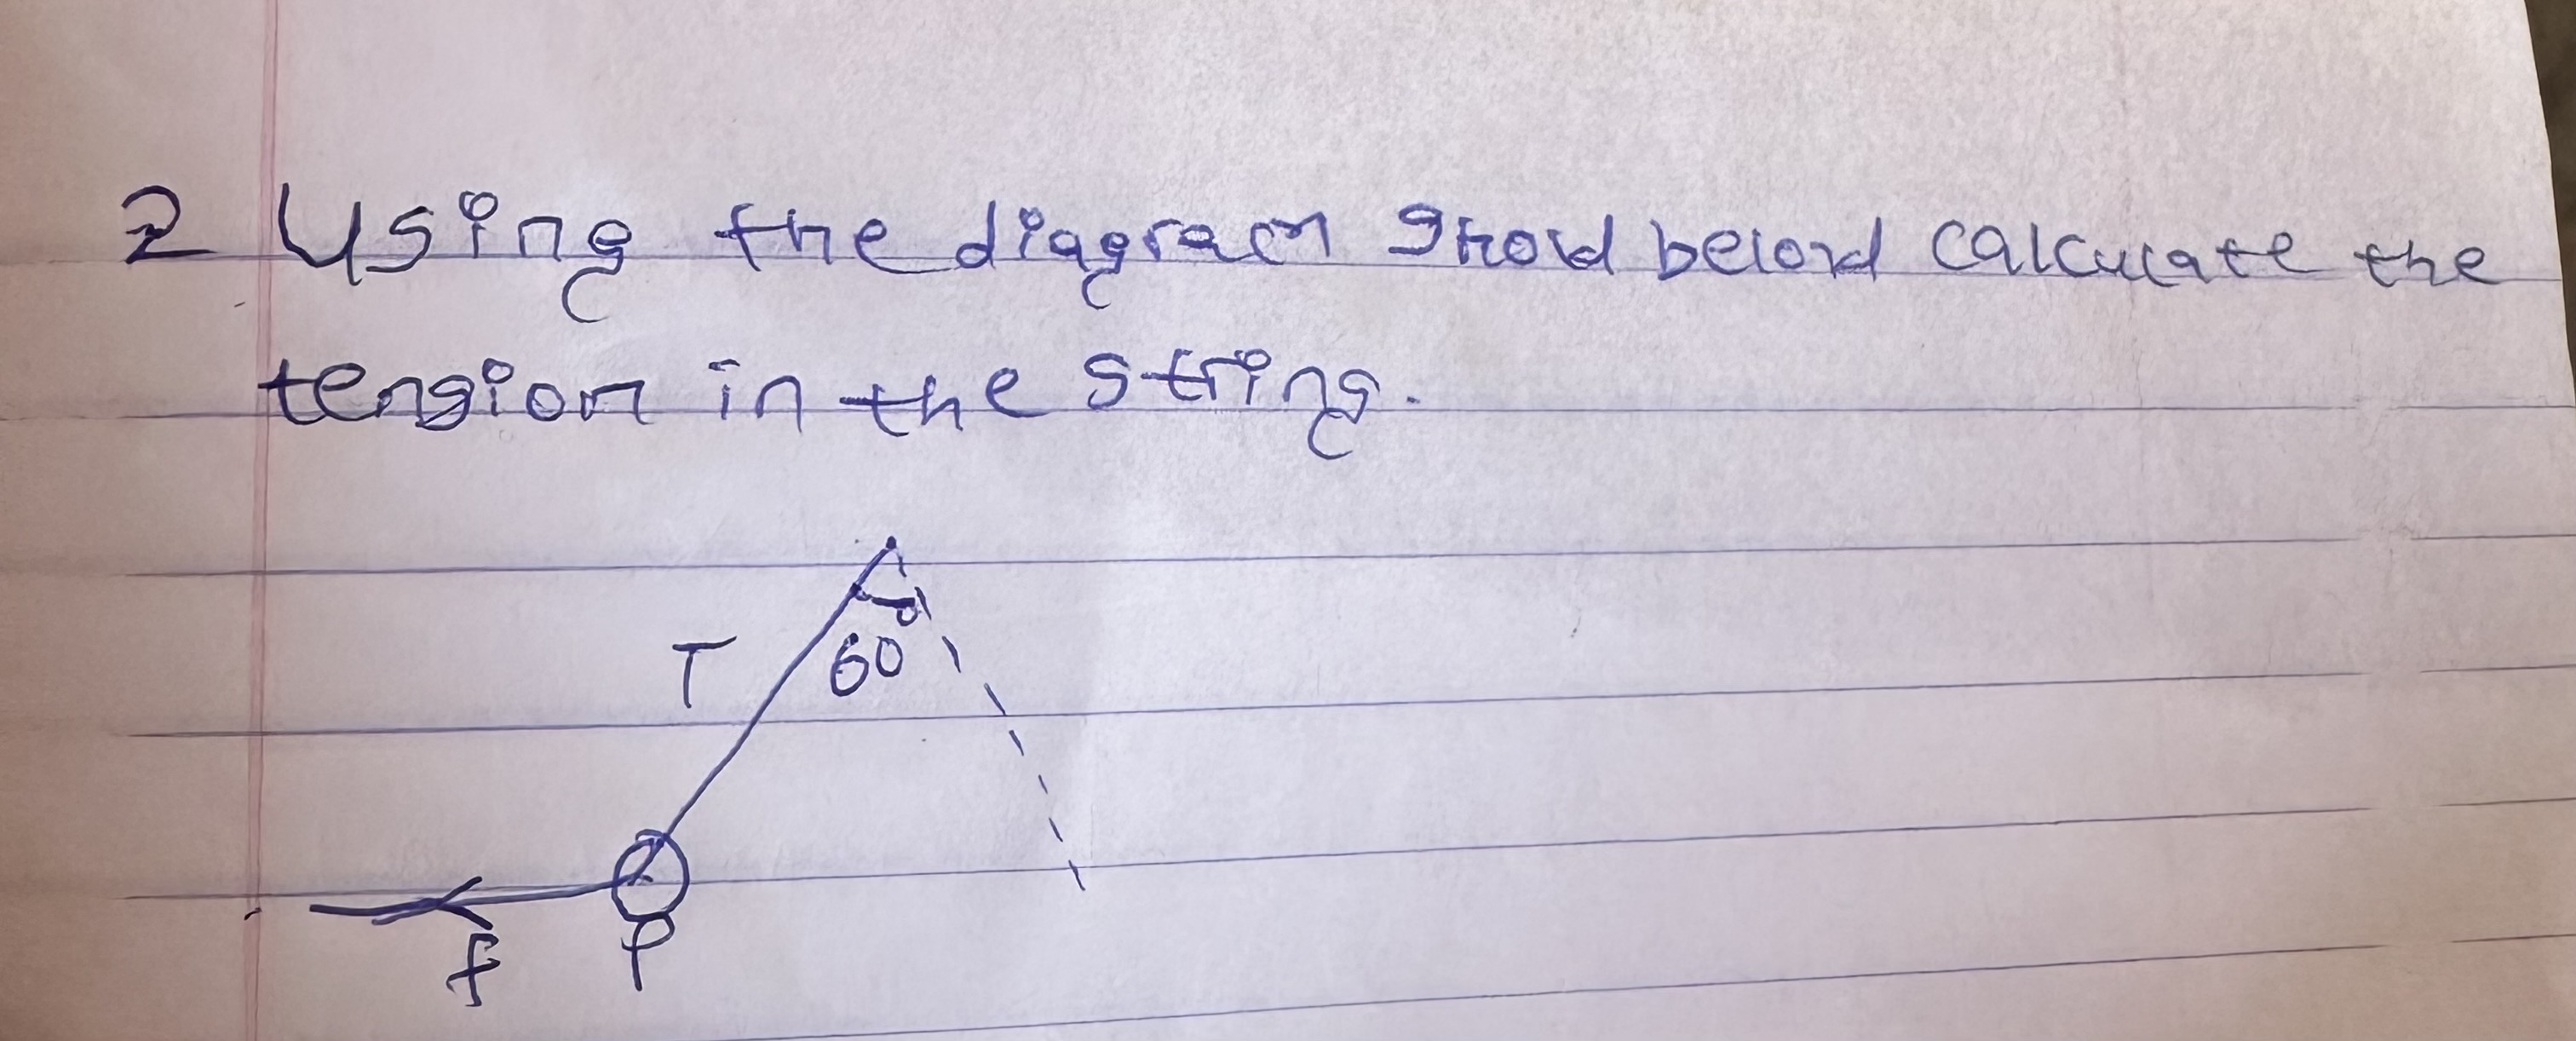 2 Using the diagram Showd belowd calculate the
tension in the string.
T
60
f
P